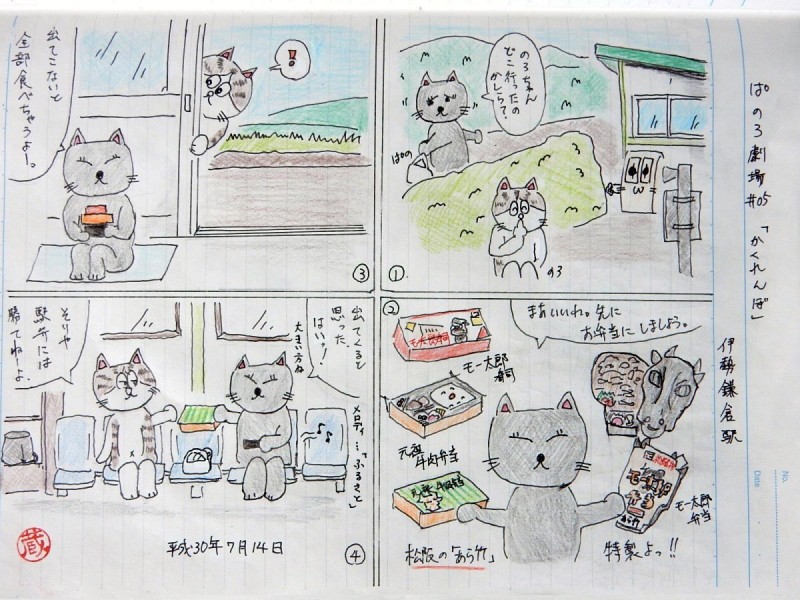 ぱのろ劇場 #05 「かくれんぼ」
伊勢鎌倉駅
No.
Date
①
のろちゃん
どこ行ったの
かしらって。
ぱの
のろ
②
まあいいわ。先に
お弁当にしましょう。
モー太郎
寿司
元祖
牛肉弁当
モー太郎
弁当
松阪の「あら竹」
特製よっ!!
③
!
出てこないと
全部食べちゃうよーっ。
④
出てくると
思った。
はいっ!
大きい方ね
メロディ…「ふるさと」
そりゃ
駅弁には
勝てねーよ。
平成30年7月14日
蔵